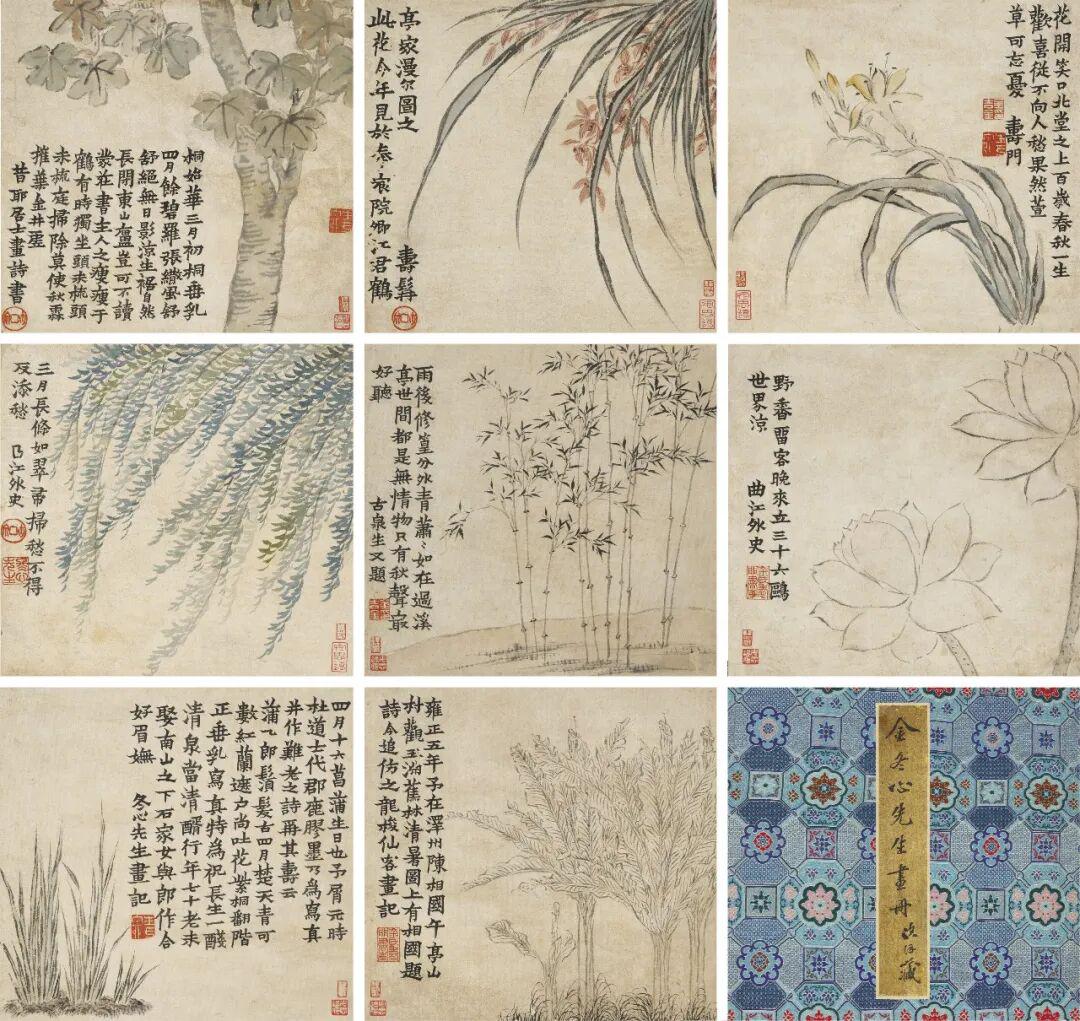 桐始華三月初桐垂乳
四月餘碧羅張繖風舒
舒絕無日影涼生裾自然
長閉東山廬豈可不讀
蒙莊書主人之瘦瘦于
鶴有時獨坐頭未梳頭
未梳庭掃除莫使秋霖
摧葉金井墜
昔耶居士畫詩書
此花今年見於奉宸院卿江君鶴
亭家漫尔圖之
壽髯
花開笑口北堂之上百歲春秋一生
歡喜從不向人愁果然萱
草可忘憂 壽門
三月長條如翠帚掃愁不得
反添愁 曲江外史
雨後修篁分外青蕭〻如在過溪
亭世間都是無情物只有秋聲最
好聽 古泉生又題
野香留客晚來立三十六鷗
世界涼 曲江外史
四月十六菖蒲生日也予屑元時
杜道士代郡鹿膠墨乃為寫真
并作難老之詩再其壽云
蒲九郎鬚髮古四月楚天青可
數紅蘭遮戶尚吐花紫桐翻階
正垂乳寫真特為祝長生一醆
清泉當清醑行年七十老未
娶南山之下石家女與郎作合
好眉嫵 冬心先生畫記
雍正五年予在澤州陳相國午亭山
村觀王瀚蕉林清暑圖上有相國題
詩今追仿之龍梭仙客畫記
金冬心先生畫冊 藏